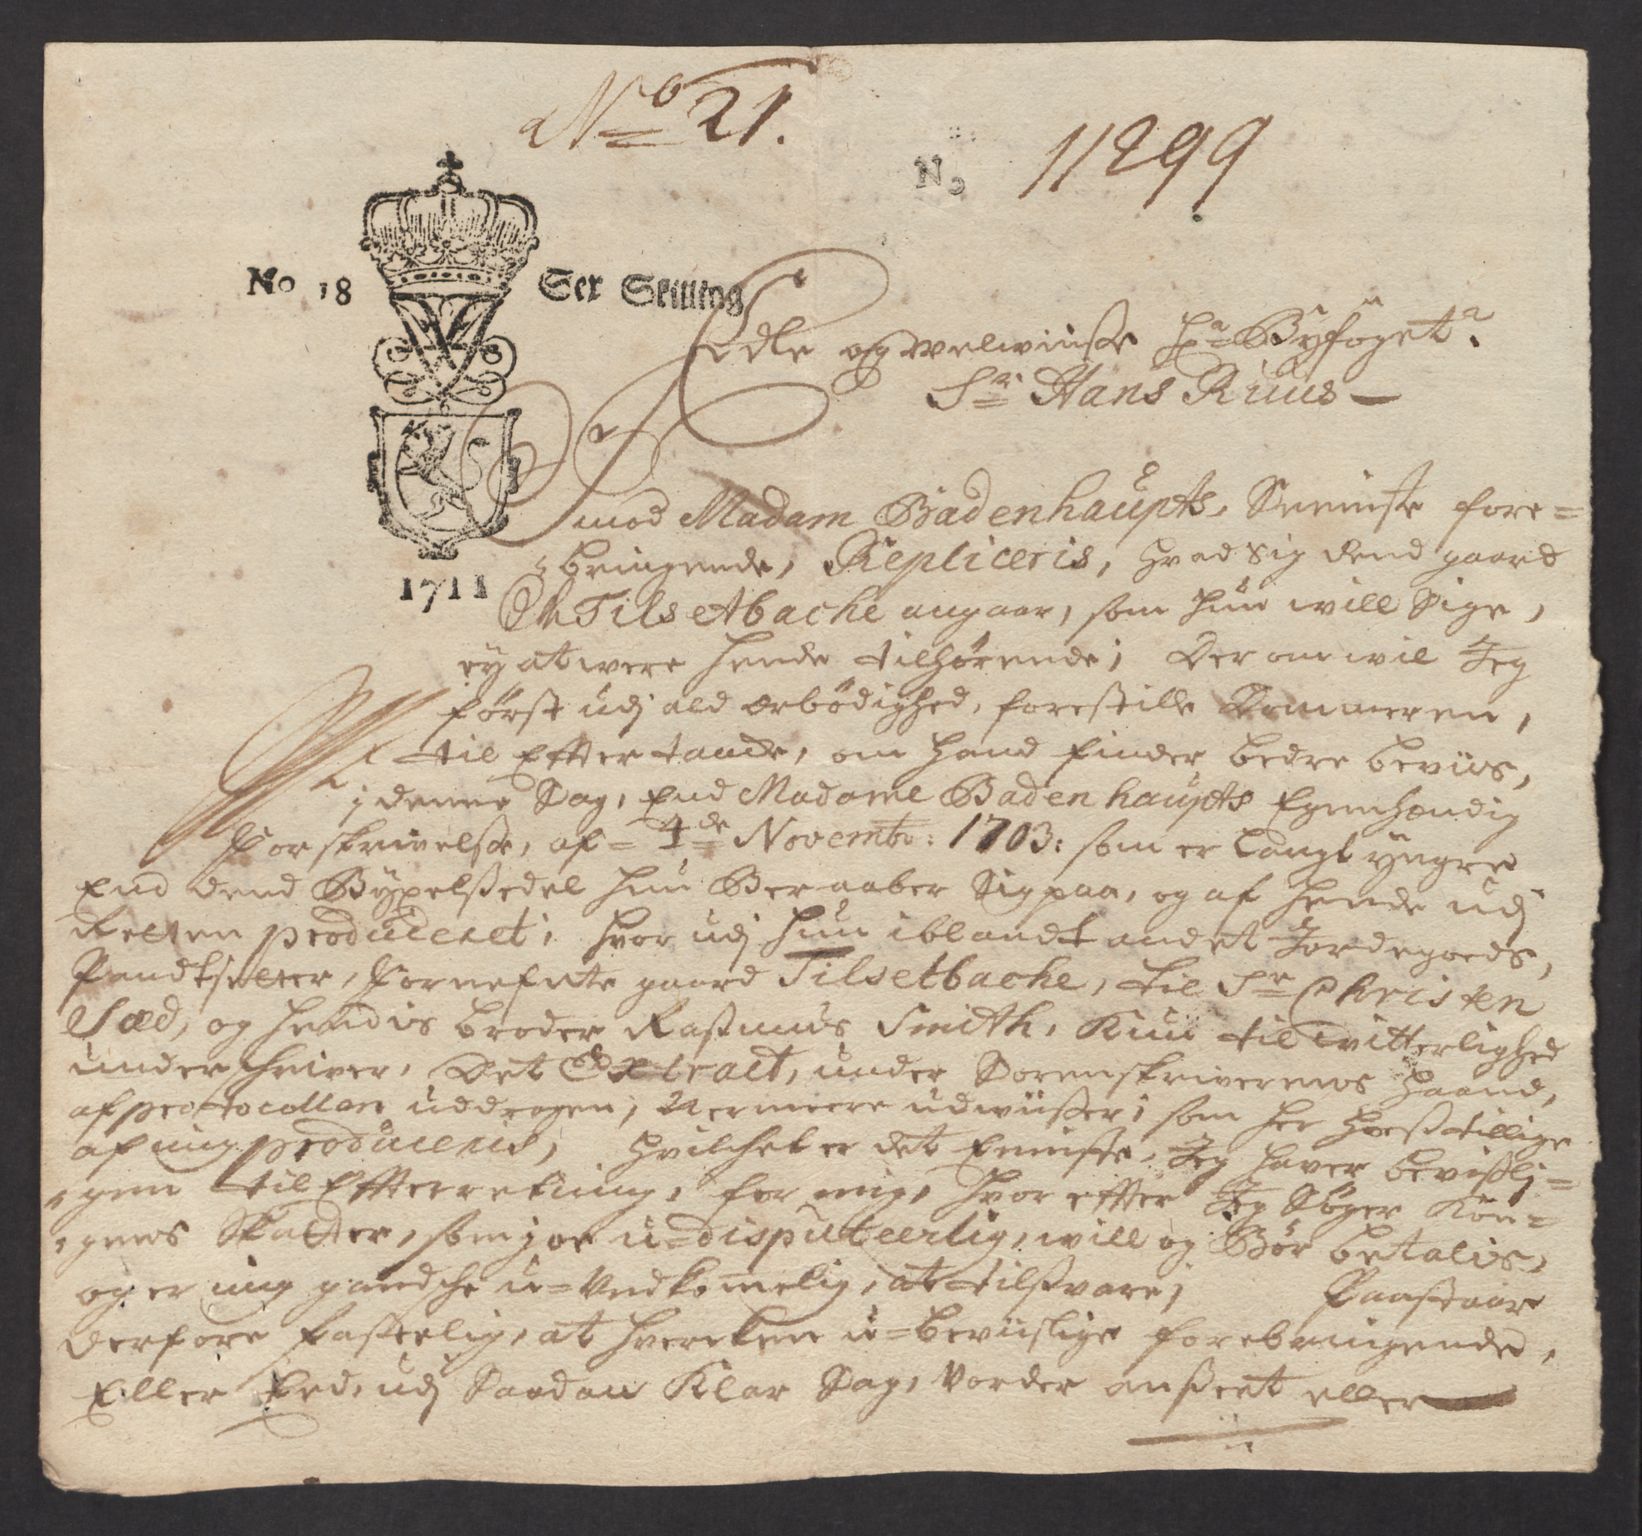 No 21.
No 11299
No 18 Sex Skilling
Edle og velwiise Hr Byfoget.
Sr Hans Ruus
1711
imod Madam Badenhaupts, Seeniste fore=
bringende, Repliceris, hvad sig dend gaard
Tilsetbache angaar, som hun will Sige,
ey at were hende tilhørende; Der om wil Jeg
først udj ald ærbødighed, forestille Dommeren,
til Effter tancke, om hand finder bedre beviis,
i denne Sag, End Madame Badenhaupts Egenhændig
Forskrivelse, af 4de Novembr: 1703: som er langt yngre
End dend Byxelsedel hun Beraaber Sig paa, og af hende udj
Retten produceret; hvor udj hun iblandt andet Jordegoeds,
Pandtsetter, Fornefnte gaard Tilsetbache, til Sr Christen
Sæd, og hendis broder Rasmus Smith, Kun til witterlighed
underskriver, Det Extract, under Sorenskriverens haand,
af protocollen uddragen, Nermere udwiiser; som her hoess tillige
af mig produceris, hvilchet er det Eeniste, Jeg haver bevislj=
gen til Effterretning, for mig, hvor effter Jeg Søger Kon=
gens Skatter, som jo u=disputeerlig, will og Bør betalis,
og er mig gandsche u=Vedkomelig, at tilsvare; Paastaar
derfore fasteelig, at hvercken u=beviislige forebringende,
Eller Eed, udj Saadan Klar Sag, Vorder anseet eller